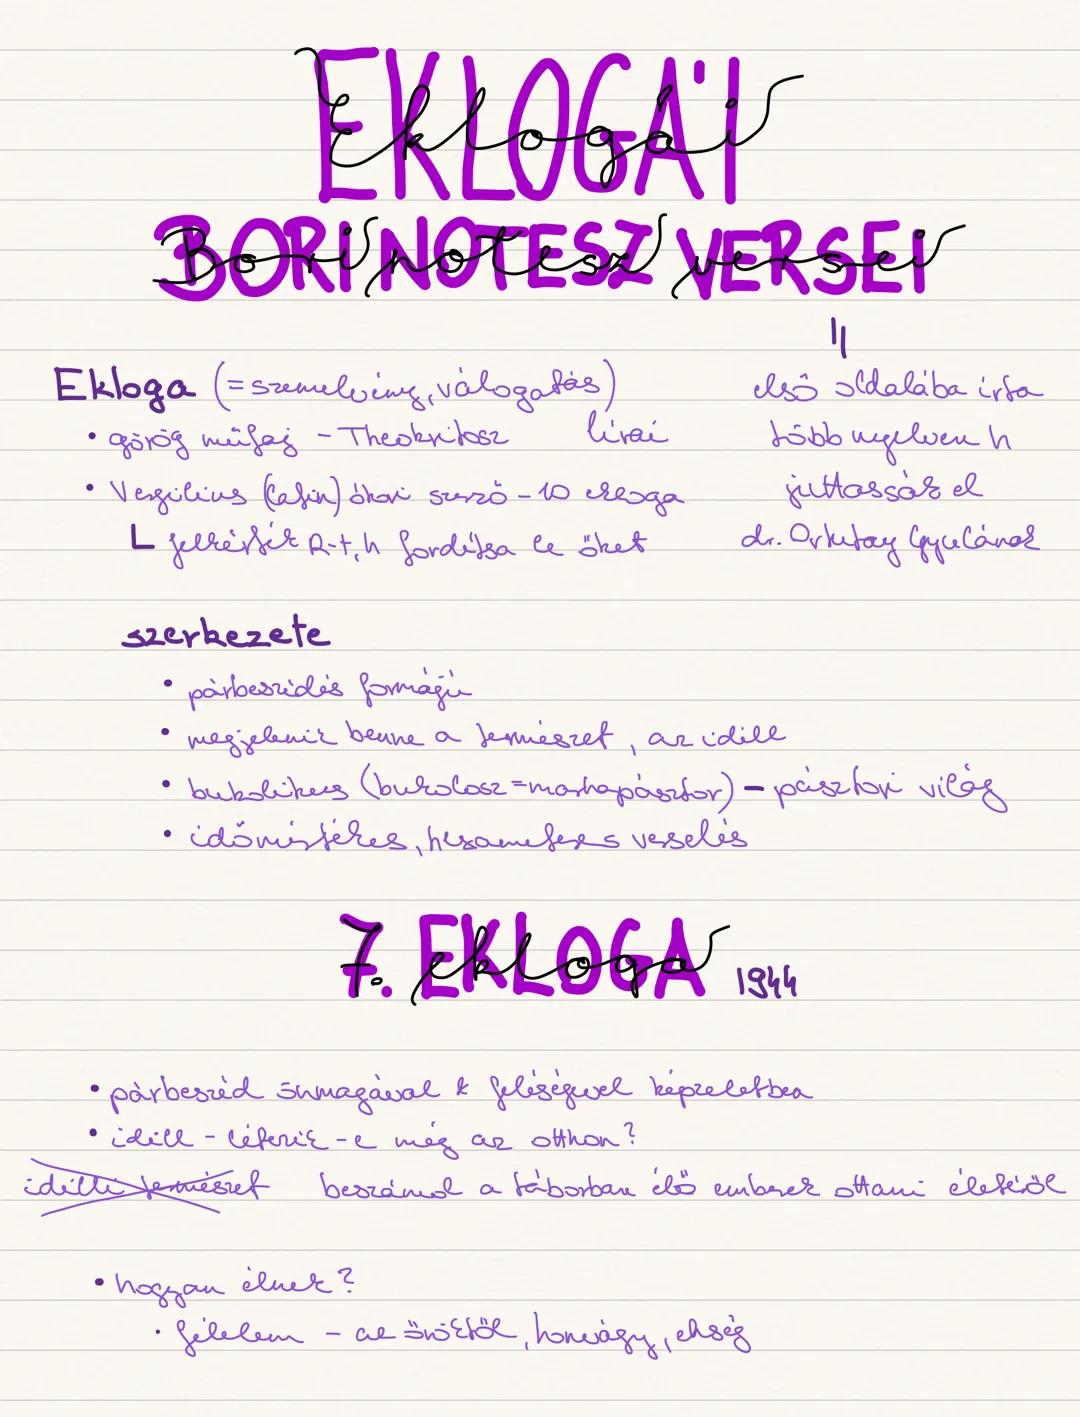 EKLOGÁI
Eklogái
BORI NOTESZ VERSEI
Bori notesz versei
Ekloga (=szemelvény, válogatás)
• görög műfaj - Theokritosz lírai
• Vergilius (latin) ókori szerző - 10 ekloga
L felkérték R-t, h fordítsa le őket
első oldalába írta
több nyelven h
juttassák el
dr. Ortutay Gyulának
szerkezete
• párbeszédés formájú
• megjelenik benne a természet, az idill
• bukolikus (bukolosz=marhapásztor) - pásztori világ
• időmértékes, hexameteres verselés
7. EKLOGA 1944
7. ekloga
• párbeszéd önmagával & feleségével képzeletben
• idill - létezik-e még az otthon?
idilli természet beszámol a táborban élő emberek ottani életéről
• hogyan élnek?
• félelem - az őröktől, honvágy, éhség